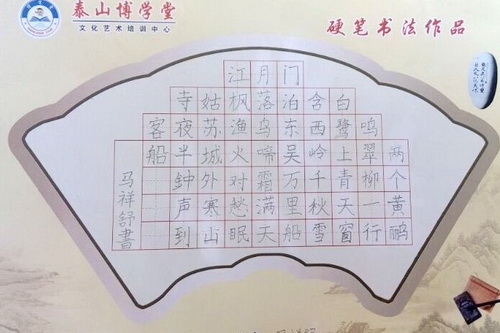 泰山博学堂
文化艺术培训中心
硬笔书法作品
两个黄鹂
鸣翠柳一行
白鹭上青天窗
含西岭千秋雪
门泊东吴万里船
月落乌啼霜满天
江枫渔火对愁眠
姑苏城外寒山
寺夜半钟声到
客船
马祥舒書